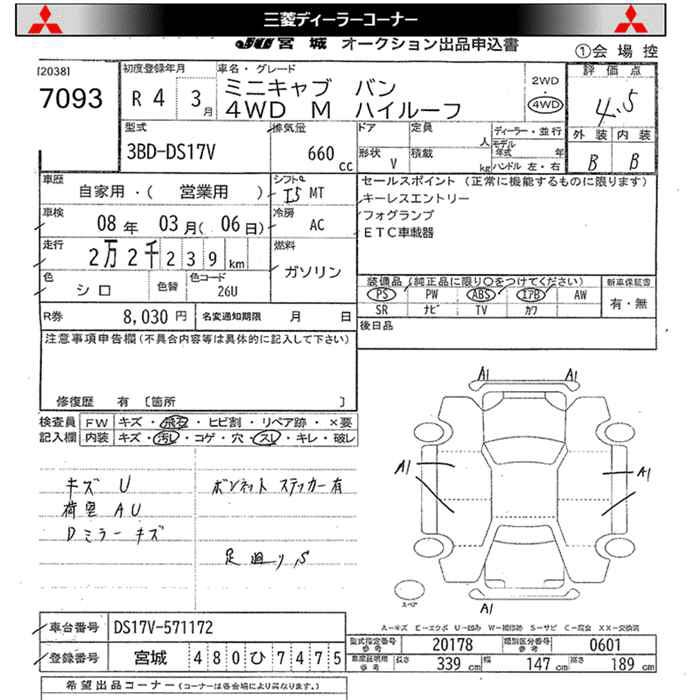 三菱ディーラーコーナー
JU宮城 オークション出品申込書
①会場控
[2038]
7093
初度登録年月
R 4 3月
車名・グレード
ミニキャブ バン
4WD M ハイルーフ
2WD
・
4WD
評価点
4.5
外装 内装
B B
型式
3BD-DS17V
排気量
660 cc
ドア 定員 人
形状 V 積載 kg
ディーラー・並行
モデル年式 年
ハンドル 左・右
車歴
自家用・( 営業用 )
シフト
I5 MT
車検
08年 03月(06日)
冷房
AC
走行
2万2千239km
燃料
ガソリン
色
シロ
色替
色コード
26U
R券 8,030円
名変通知期限 月 日
セールスポイント (正常に機能するものに限ります)
キーレスエントリー
フォグランプ
ETC車載器
装備品 (純正品に限り○をつけてください)
PS PW ABS エアB AW
SR ナビ TV カワ
新車保証書
有・無
後日品
注意事項申告欄(不具合内容等は具体的に記入して下さい)
修復歴 有 〔箇所 〕
検査員記入欄
FW キズ・飛石・ヒビ割・リペア跡・×要
内装 キズ・汚レ・コゲ・穴・スレ・キレ・破レ
キズ U
荷室 AU
Dミラー キズ
ボンネット ステッカー有
足廻り S
A1 A1
A1 A1
A1
スペア
A-キズ E-エクボ U-凹み W-補修跡 S-サビ C-腐食 XX-交換済
車台番号 DS17V-571172
登録番号 宮城 480ひ7475
型式指定番号 参考 20178
類別区分番号 参考 0601
車庫証明用 参考 長さ 339cm 幅 147cm 高さ 189cm
希望出品コーナー(コーナーは各会場により異なります。)